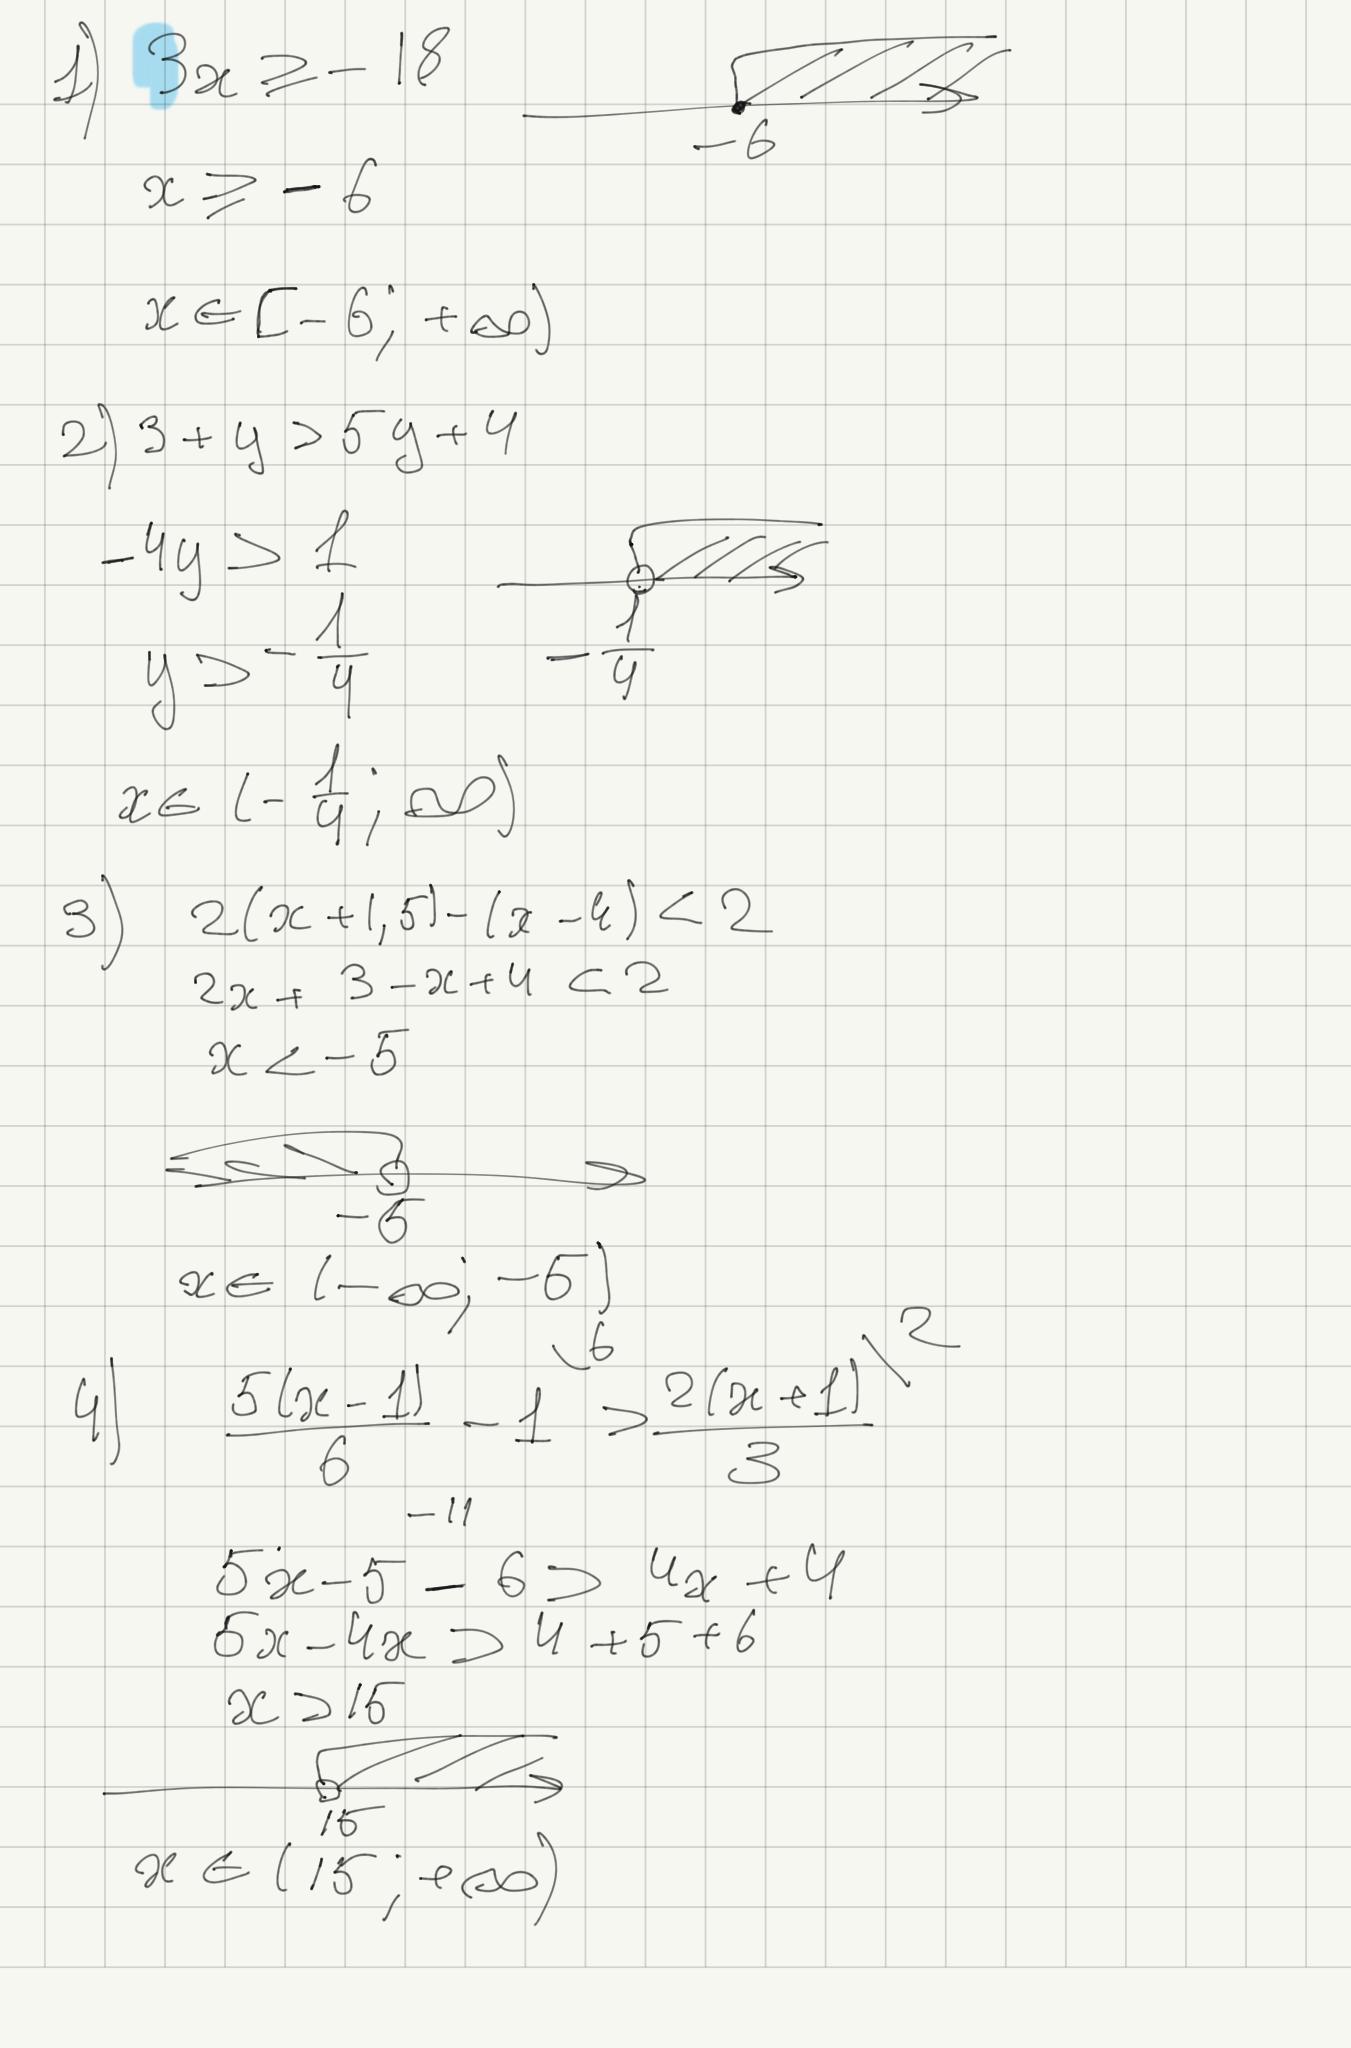 1) 3x ≥ -18
-6
x ≥ -6
x ∈ [-6; +∞)
2) 3 + y > 5y + 4
-4y > 1
y > -1/4
-1/4
x ∈ (-1/4; ∞)
3) 2(x + 1,5) - (x - 4) < 2
2x + 3 - x + 4 < 2
x < -5
-5
x ∈ (-∞; -5)
4) 5(x - 1)/6 - 1\6 > 2(x + 1)/3 \2
-11
5x - 5 - 6 > 4x + 4
5x - 4x > 4 + 5 + 6
x > 15
15
x ∈ (15; +∞)